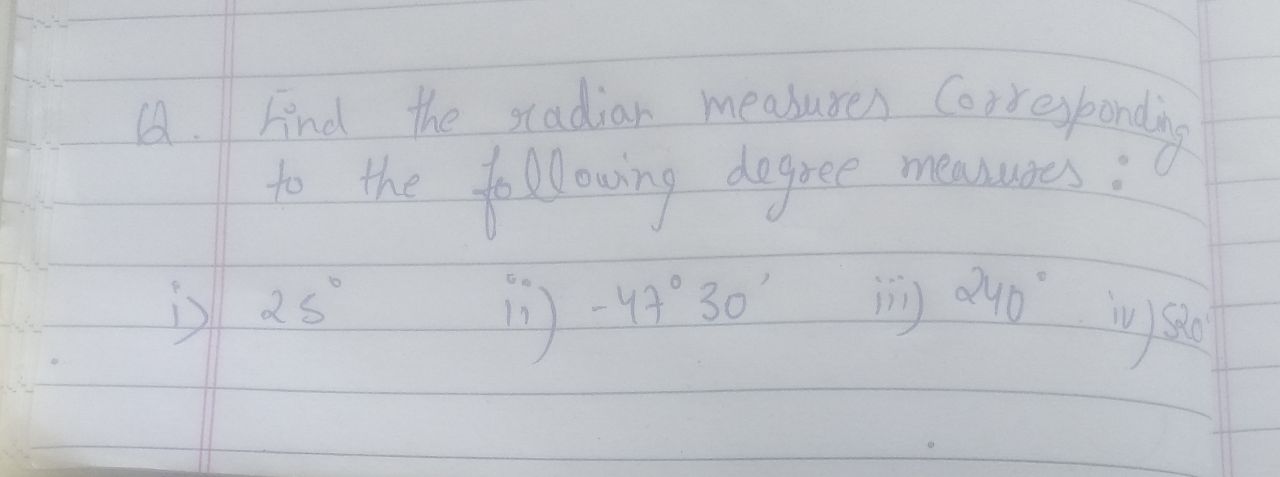 Q. Find the radian measures Corresponding
to the following degree measures :
i) 25° ii) -47° 30' iii) 240° iv) 520°